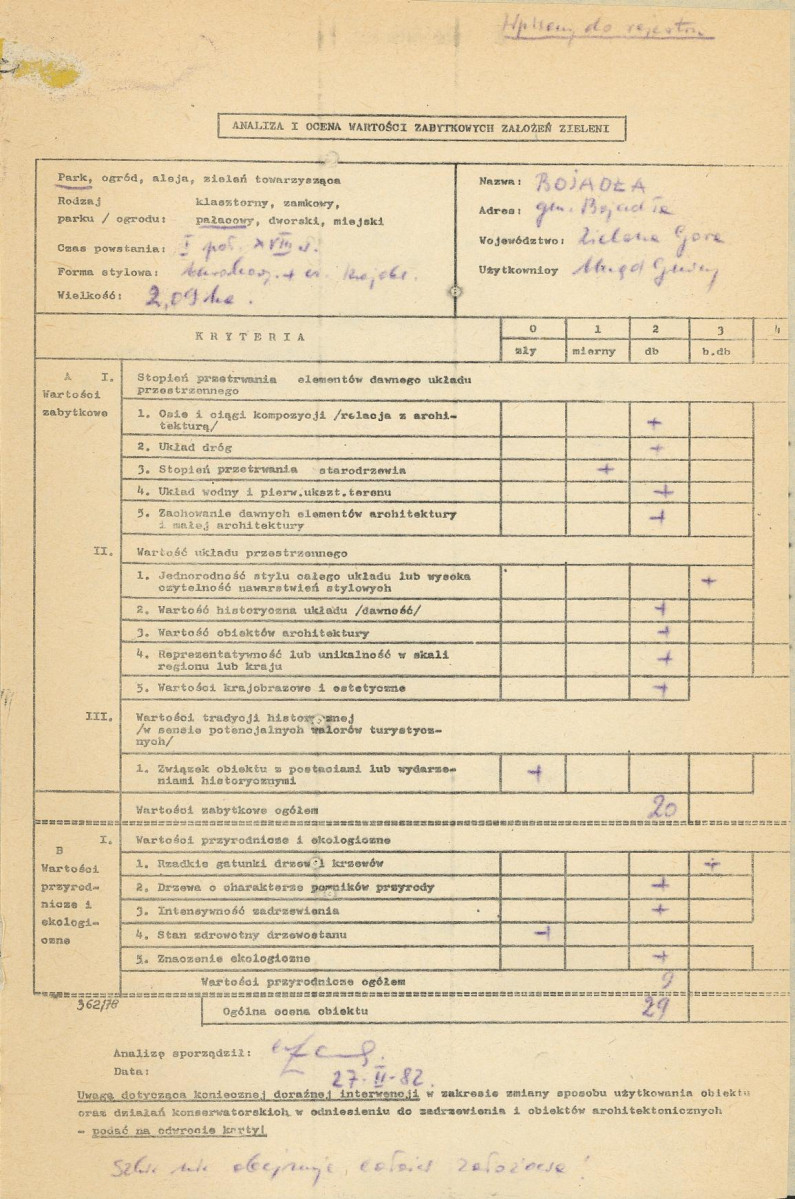 Wpisany do rejestru
ANALIZA I OCENA WARTOŚCI ZABYTKOWYCH ZAŁOŻEŃ ZIELENI
Park, ogród, aleja, zieleń towarzysząca
Rodzaj klasztorny, zamkowy,
parku / ogrodu: pałacowy, dworski, miejski
Czas powstania: I poł. XVIII w.
Forma stylowa: barokowy +
Wielkość: 2,09 ha.
Nazwa: BOJADŁA
Adres: gm. Bojadła
Województwo: Zielona Góra
Użytkownicy Urząd Gminy
KRYTERIA
0 1 2 3 4
zły mierny db b.db
A I. Stopień przetrwania elementów dawnego układu
Wartości przestrzennego
zabytkowe
1. Osie i ciągi kompozycji /relacja z archi-
tekturą/ +
2. Układ dróg +
3. Stopień przetrwania starodrzewia +
4. Układ wodny i pierw.ukszt.terenu +
5. Zachowanie dawnych elementów architektury
i małej architektury +
II. Wartość układu przestrzennego
1. Jednorodność stylu całego układu lub wysoka
czytelność nawarstwień stylowych +
2. Wartość historyczna układu /dawność/ +
3. Wartość obiektów architektury +
4. Reprezentatywność lub unikalność w skali
regionu lub kraju +
5. Wartości krajobrazowe i estetyczne +
III. Wartości tradycji historycznej
/w sensie potencjalnych walorów turystycz-
nych/
1. Związek obiektu z postaciami lub wydarze-
niami historycznymi +
Wartości zabytkowe ogółem 20
B I. Wartości przyrodnicze i ekologiczne
Wartości
przyrod-
nicze i
ekologi-
czne
1. Rzadkie gatunki drzew i krzewów +
2. Drzewa o charakterze pomników przyrody +
3. Intensywność zadrzewienia +
4. Stan zdrowotny drzewostanu +
5. Znaczenie ekologiczne +
Wartości przyrodnicze ogółem 9
362/78
Ogólna ocena obiektu 29
Analizę sporządził:
Data: 27-II-82.
Uwagą dotycząca koniecznej doraźnej interwencji w zakresie zmiany sposobu użytkowania obiektu
oraz działań konserwatorskich w odniesieniu do zadrzewienia i obiektów architektonicznych
- podać na odwrocie karty!
nie obejmuje całości założenia!